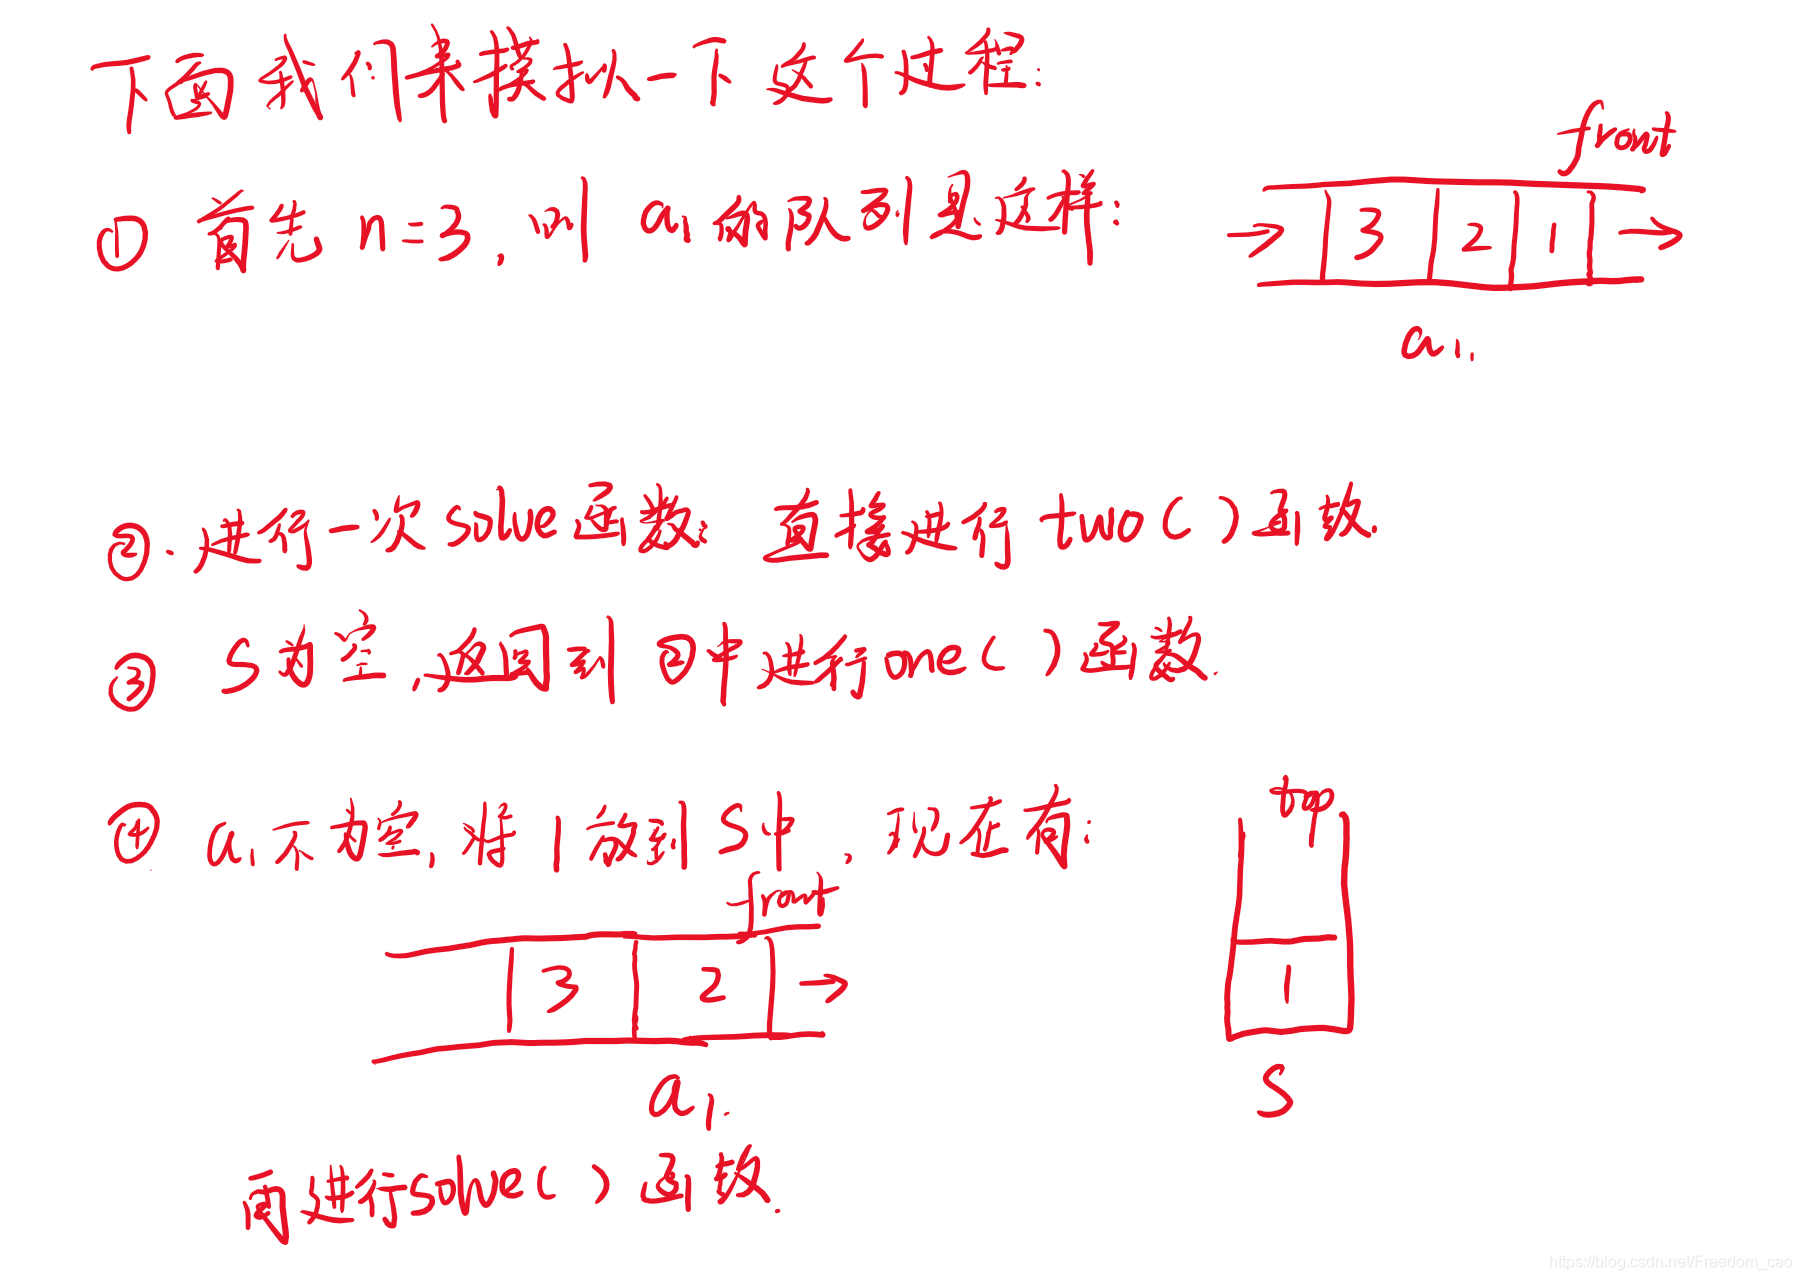 下面我们来摸拟一下这个过程:
front
① 首先 n=3, 则 a1 的队列是这样:
→ 3 2 1 →
a1.
②. 进行一次 solve 函数: 直接进行 two( ) 函数.
③ S为空,返回到 ②中进行one( ) 函数.
④ a1不为空, 将 1 放到 S中, 现在有:
top
front
3 2 →
1
a1.
S
再进行solve( ) 函数.
https://blog.csdn.net/Freedom_cao